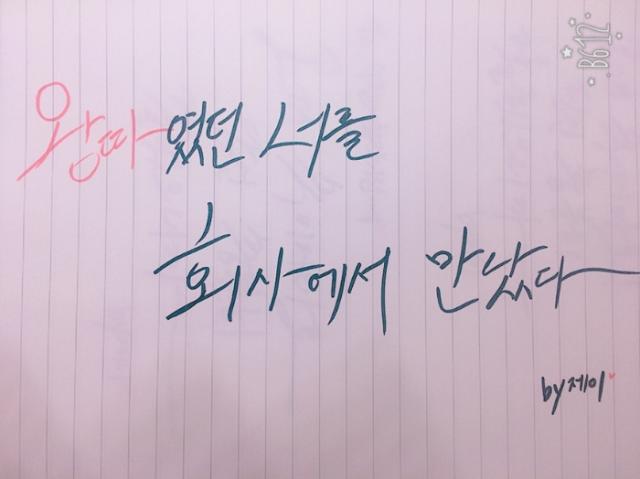 B612
왕따였던 너를
회사에서 만났다
by제이